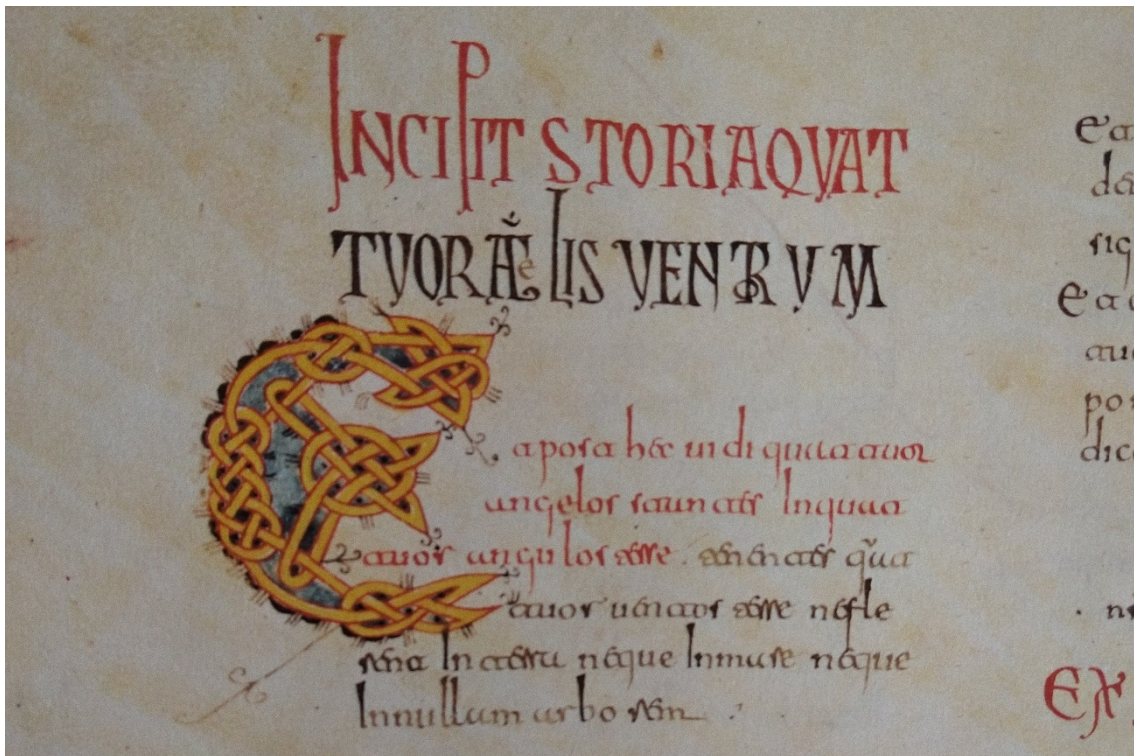 INCIPIT STORIA QVAT
TVOR VENTRVM
Et post hec uidi quattuor
angelos stantes In quat
tuor angulos terre . tenentes quat
tuor uentos terre ne fle
rent In terra neque In mare neque
In ullam arborem